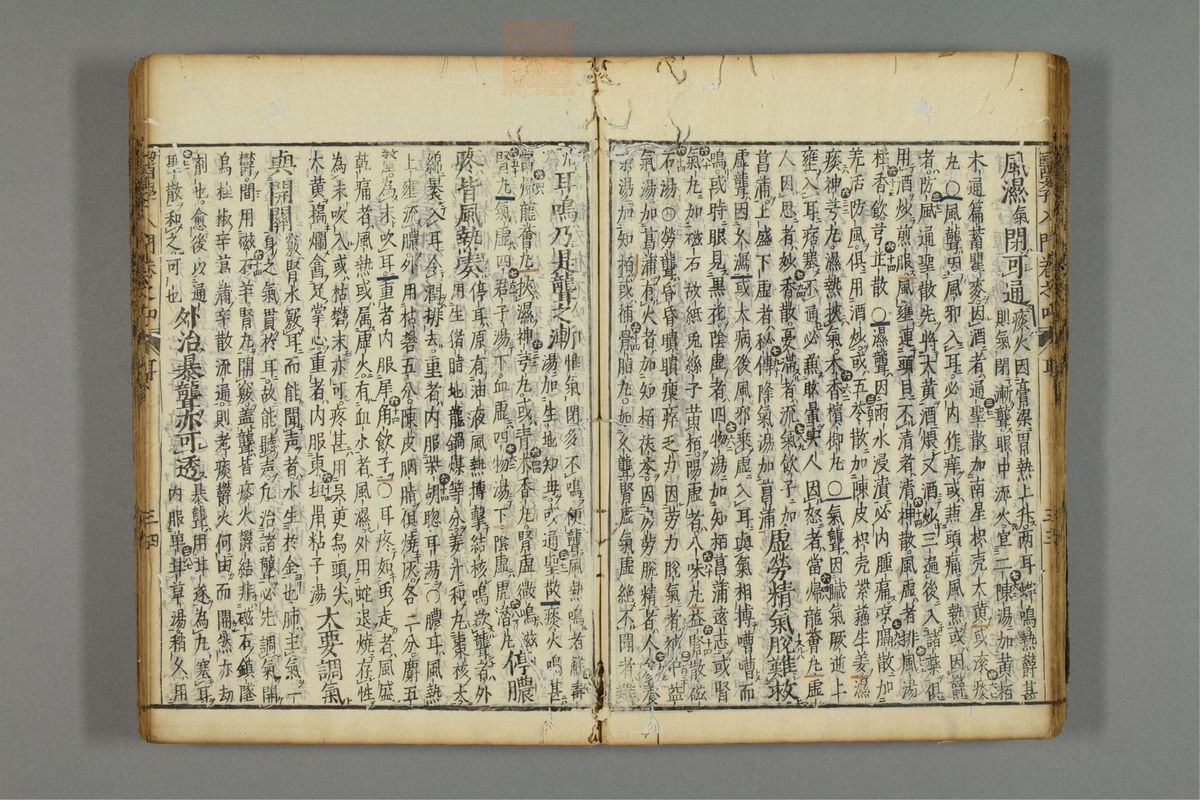 風濕氣閉可通
痰火因膏粱胃熱上升兩耳蟬鳴熱鬱甚
則氣閉漸聾眼中流火宜二陳湯加黃栢
木通篇蓄瞿麥因酒者通聖散加南星枳殼大黃或滚痰
丸○風聾因風邪入耳必内作痒或兼頭痛風熱或因鬱
者防風通聖散先將大黃酒煨又酒炒三遍後入諸藥俱
用酒炒煎服風壅連頭目不清者清神散風虛者排風湯
桂香飲芎芷散○濕聾因雨水浸漬必内腫痛凉膈散加
羌活防風俱用酒炒或五苓散加陳皮枳殼紫蘓生姜濕
痰神芎丸濕熱挾氣木香檳榔丸○氣聾因臟氣厥逆上
壅入耳痞塞不通必兼眩暈實人因怒者當歸龍薈丸虛
人因思者妙香散憂滯者流氣飲子加
菖蒲上盛下虛者秘傳降氣湯加菖蒲
虛勞精氣脫難救
虛聾因久瀉或大病後風邪乘虛入耳與氣相搏嘈嘈而
鳴或時眼見黑花陰虛者四物湯加知栢菖蒲遠志或腎
氣丸加磁石故紙兎絲子黃栢陽虛者八味丸益腎散磁
石湯○勞聾昏昏瞶瞶瘦瘁乏力因勞力脫氣者補中益
氣湯加菖蒲有火者加知栢茯苓因房勞脫精者人參養
榮湯加知栢或補骨脂丸如久聾腎虛氣虛絕不聞者難
醫學入門卷之四 耳 三三
凡耳鳴乃是聾之漸
惟氣閉多不鳴便聾風熱鳴者解毒
湯加生地知母或通聖散痰火鳴甚
當歸龍薈丸挾濕神芎丸或青木香丸腎虛微鳴滋
腎丸氣虛四君子湯下血虛四物湯下陰虛虎潛丸
停膿
疼皆風熱湊
停耳原有油液風熱搏擊結核鳴欬聾者外
用生猪脂地龍鍋煤等分姜汁和丸棗核大
綿裹入耳令潤挑去重者内服柴胡聰耳湯○膿耳風熱
上壅流膿外用枯礬五分陳皮胭脂俱燒灰各二分麝五
釐為末吹耳重者内服犀角飲子○耳疼如虫走者風盛
乾痛者風熱或屬虛火有血水者風濕外用蛇退燒存性
為末吹入或枯礬末亦可疼甚用吳茰烏頭尖
大黃搗爛盦足掌心重者内服東垣鼠粘子湯
大要調氣
與開關
蓋腎水竅耳而能聞聲者水生於金也肺主氣一
身之氣貫於耳故能聽聲凡治諸聾必先調氣開
鬱間用磁石羊腎丸開竅蓋聾皆痰火鬱結非磁石鎮墜
烏桂椒辛菖蒲辛散流通則老痰鬱火何由而開然亦劫
剤也愈後以通
聖散和之可也
外治暴聾亦可透
暴聾用甘遂為丸塞耳
内服單甘草湯稍久用
醫學入門卷之四 耳 三四
zyyg.com.cn